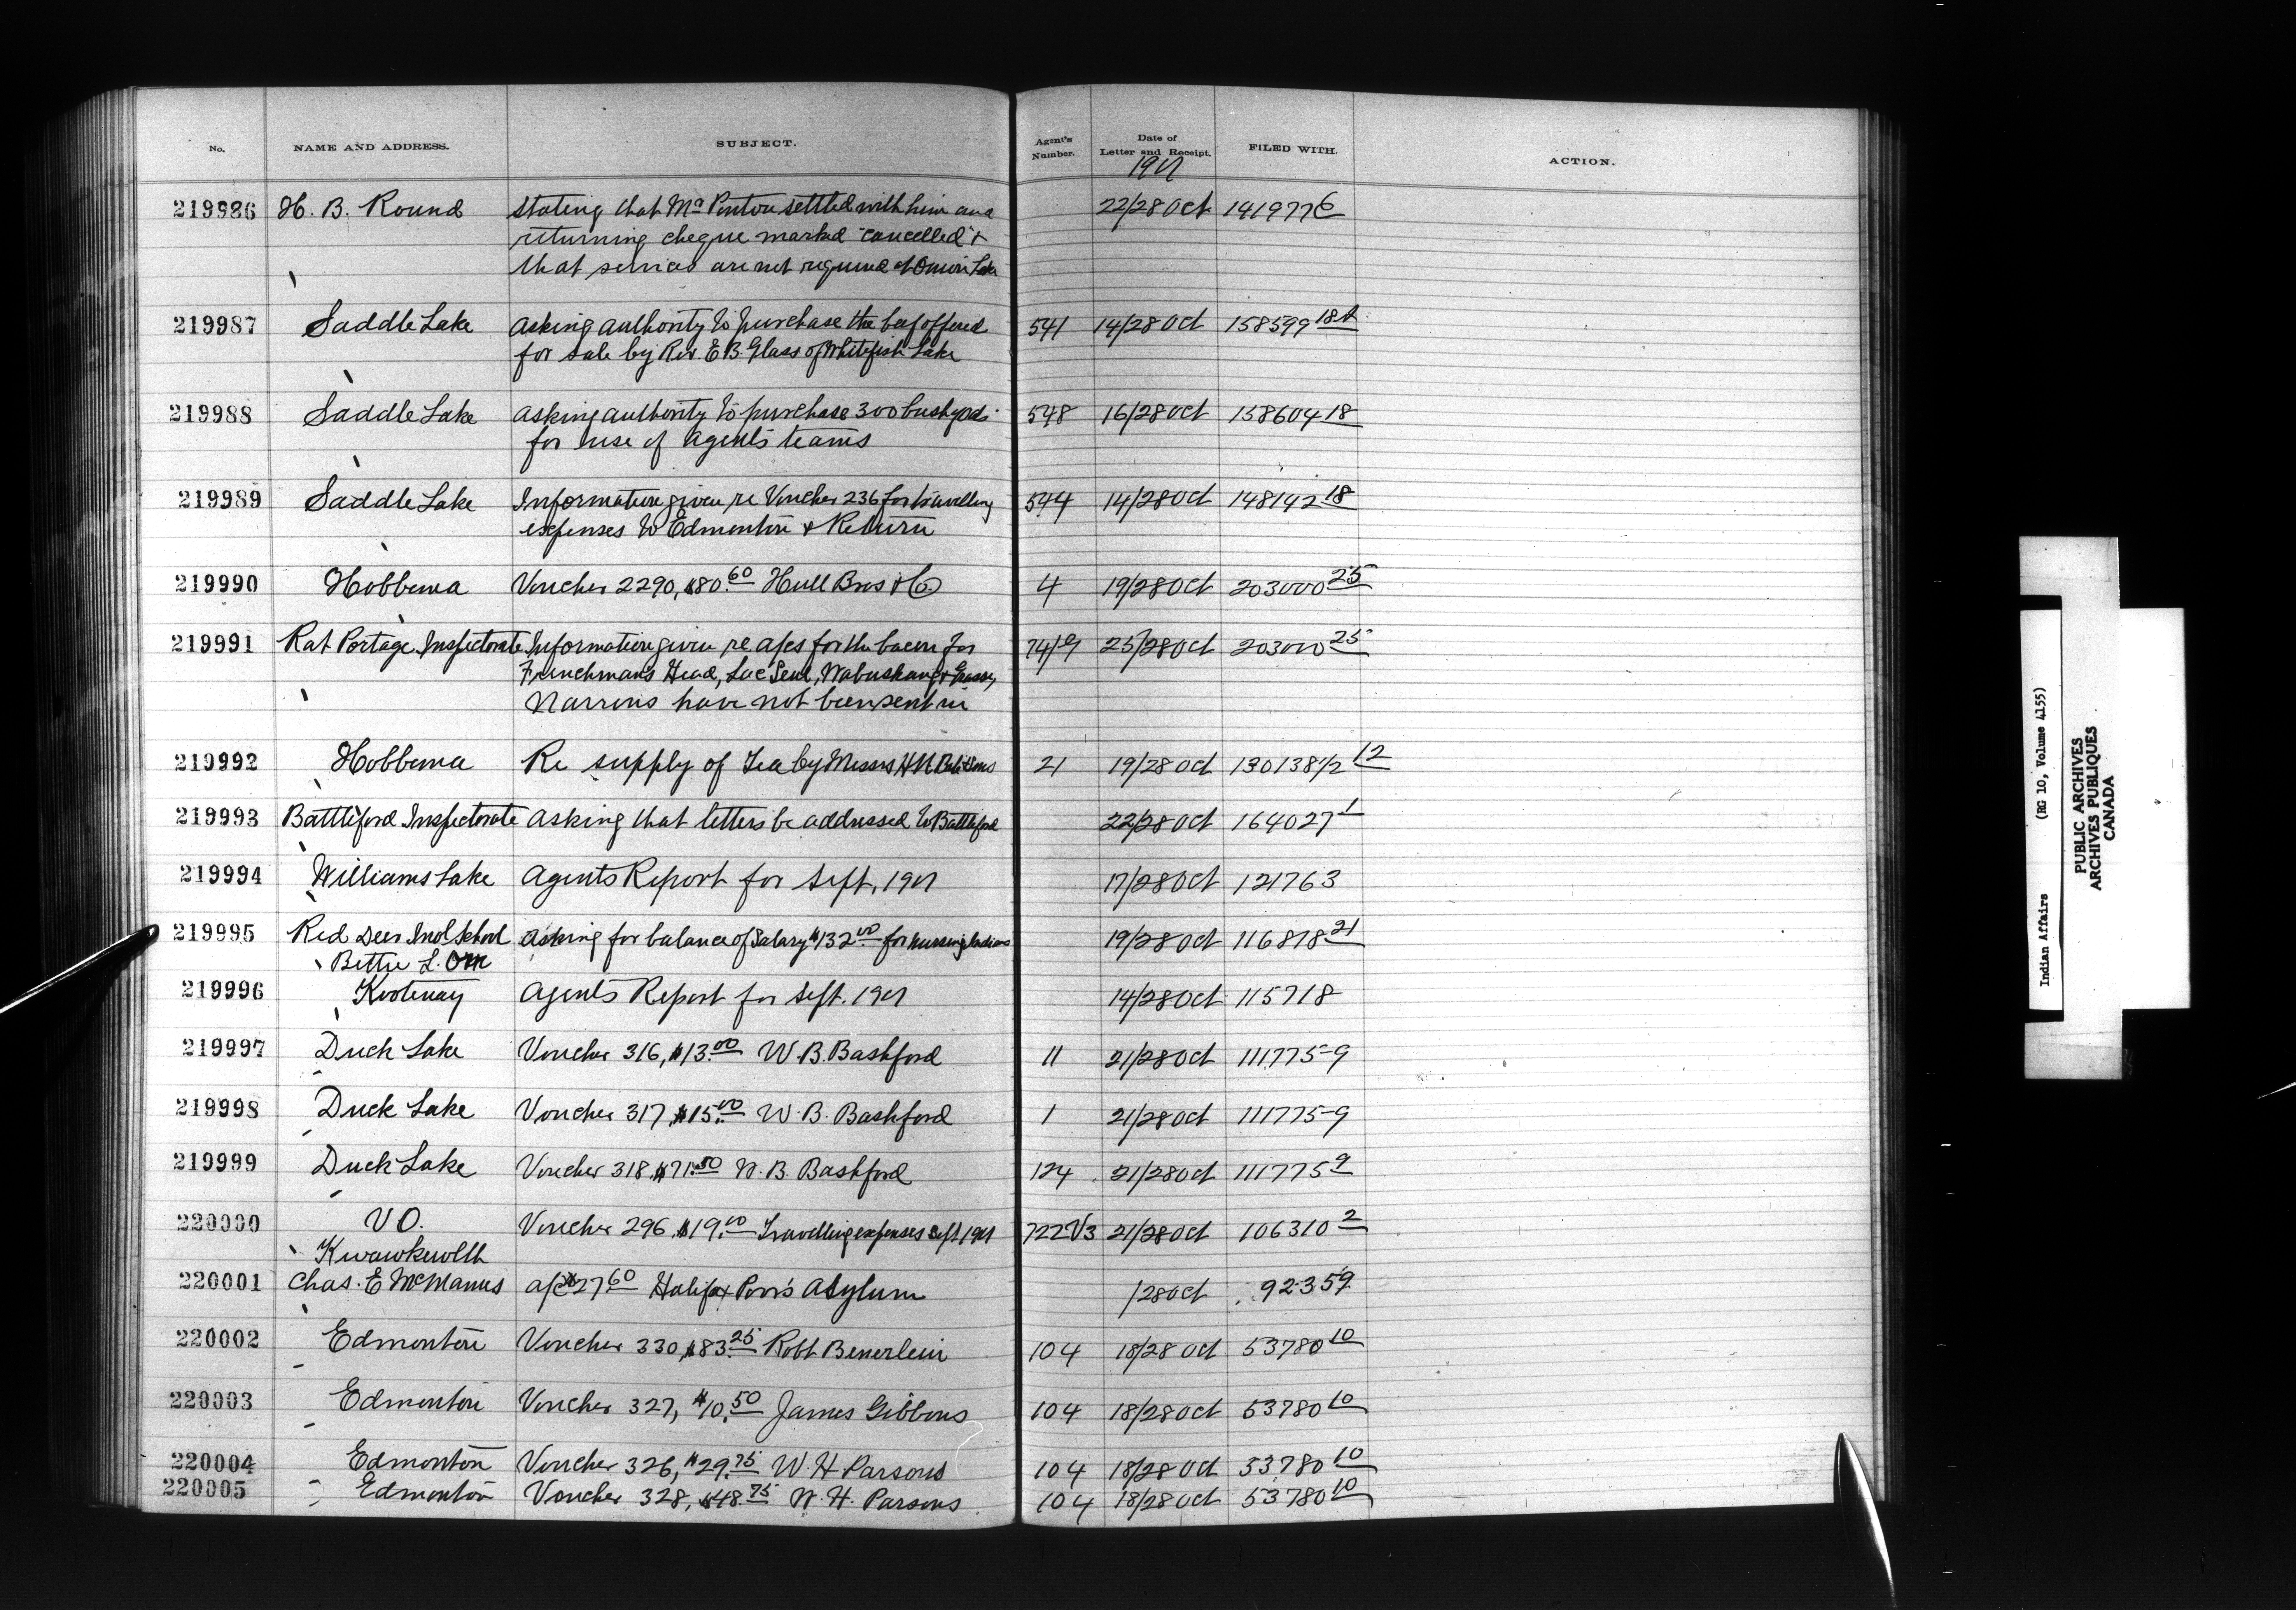 No. NAME AND ADDRESS. SUBJECT. Agent's Number. Date of Letter and Receipt. FILED WITH. ACTION.
219986 H. B. Round Stating that Mr Ponton settled with him and 22/28 Oct 141977 6
returning cheque marked "cancelled" &
that services are not required at Onion Lake
219987 Saddle Lake Asking authority to purchase the beef offered 541 14/28 Oct 158599 18
for sale by Rev. E B. Glass of Whitefish Lake
219988 Saddle Lake Asking authority to purchase 300 bush 548 16/28 Oct 158604 18
for use of Agent's teams
219989 Saddle Lake Information given re Voucher 236 for travelling 544 14/28 Oct 148142 18
expenses to Edmonton & Return
219990 Hobbema Voucher 2290, $80.60 Hull Bros & Co. 4 19/28 Oct 203000 25
219991 Rat Portage Inspectorate Information given re a/cs for the bacon for 74/19 25/28 Oct 203000 25
Frenchman's Head, Lac Seul, Wabuskang & Grassy
Narrows have not been sent in
219992 Hobbema Re supply of Tea by Messrs H N Bate & Sons 21 19/28 Oct 130138 1/2 12
219993 Battleford Inspectorate Asking that letters be addressed to Battleford 22/28 Oct 164027 1
219994 Williams Lake Agents Report for Sept, 1901 17/28 Oct 121763
219995 Red Deer Ind School Asking for balance of Salary $132.00 for nursing Indians 19/28 Oct 116818 21
Bettie L. Orr
219996 Kootenay Agents Report for Sept. 1901 14/28 Oct 115718
219997 Duck Lake Voucher 316, $13.00 W. B. Bashford 11 21/28 Oct 111775-9
219998 Duck Lake Voucher 317, $15.00 W. B. Bashford 1 21/28 Oct 111775-9
219999 Duck Lake Voucher 318, $71.50 W. B. Bashford 124 21/28 Oct 111775 9
220000 V O. Voucher 296, $19.00 Travelling expenses Sept 1901 722 V3 21/28 Oct 106310 2
Kwawkewlth
220001 Chas. E McManus a/c $27.60 Halifax Poor's Asylum /28 Oct 92359
220002 Edmonton Voucher 330, $83.25 Robt 104 18/28 Oct 53780 10
220003 Edmonton Voucher 327, $10.50 James Gibbons 104 18/28 Oct 53780 10
220004 Edmonton Voucher 326, $29.75 W. H. Parsons 104 18/28 Oct 53780 10
220005 Edmonton Voucher 328, $48.75 W. H. Parsons 104 18/28 Oct 53780 10
Indian Affairs (RG 10, Volume 4155)
PUBLIC ARCHIVES
ARCHIVES PUBLIQUES
CANADA